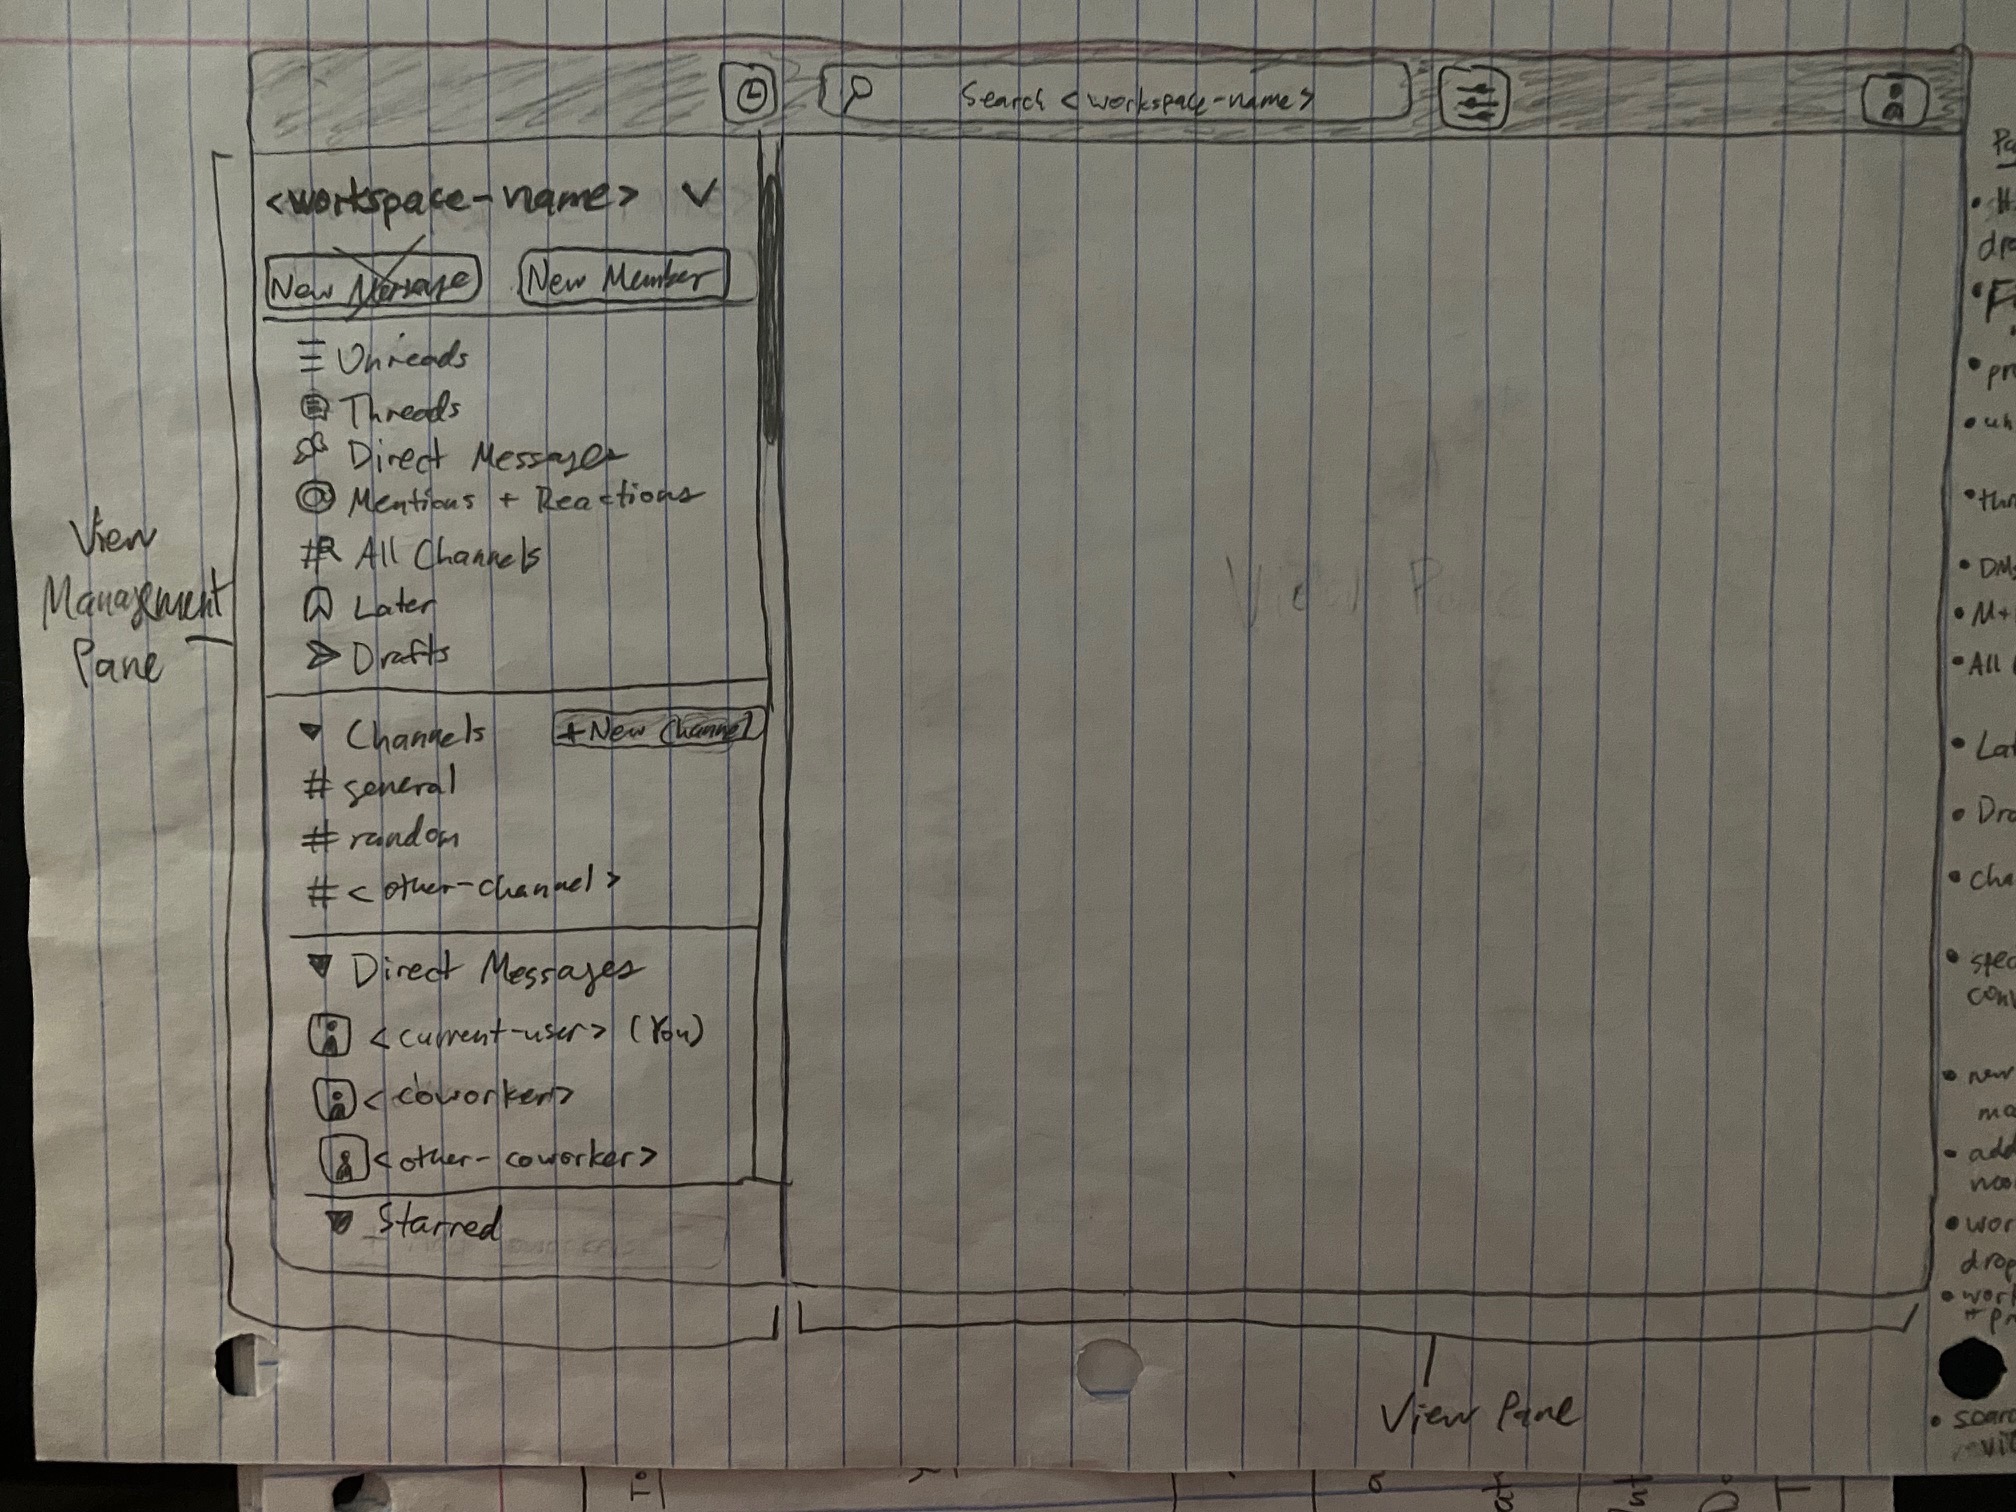 Search <workspace-name>
<workspace-name>
New Message
New Member
Unreads
Threads
Direct Messages
@ Mentions + Reactions
# All Channels
Later
Drafts
Channels
+ New Channel
# general
# random
# <other-channel>
Direct Messages
<current-user> (You)
<coworker>
<other-coworker>
Starred
View
Management
Pane
View Pane
View Pane
• All
• DMs